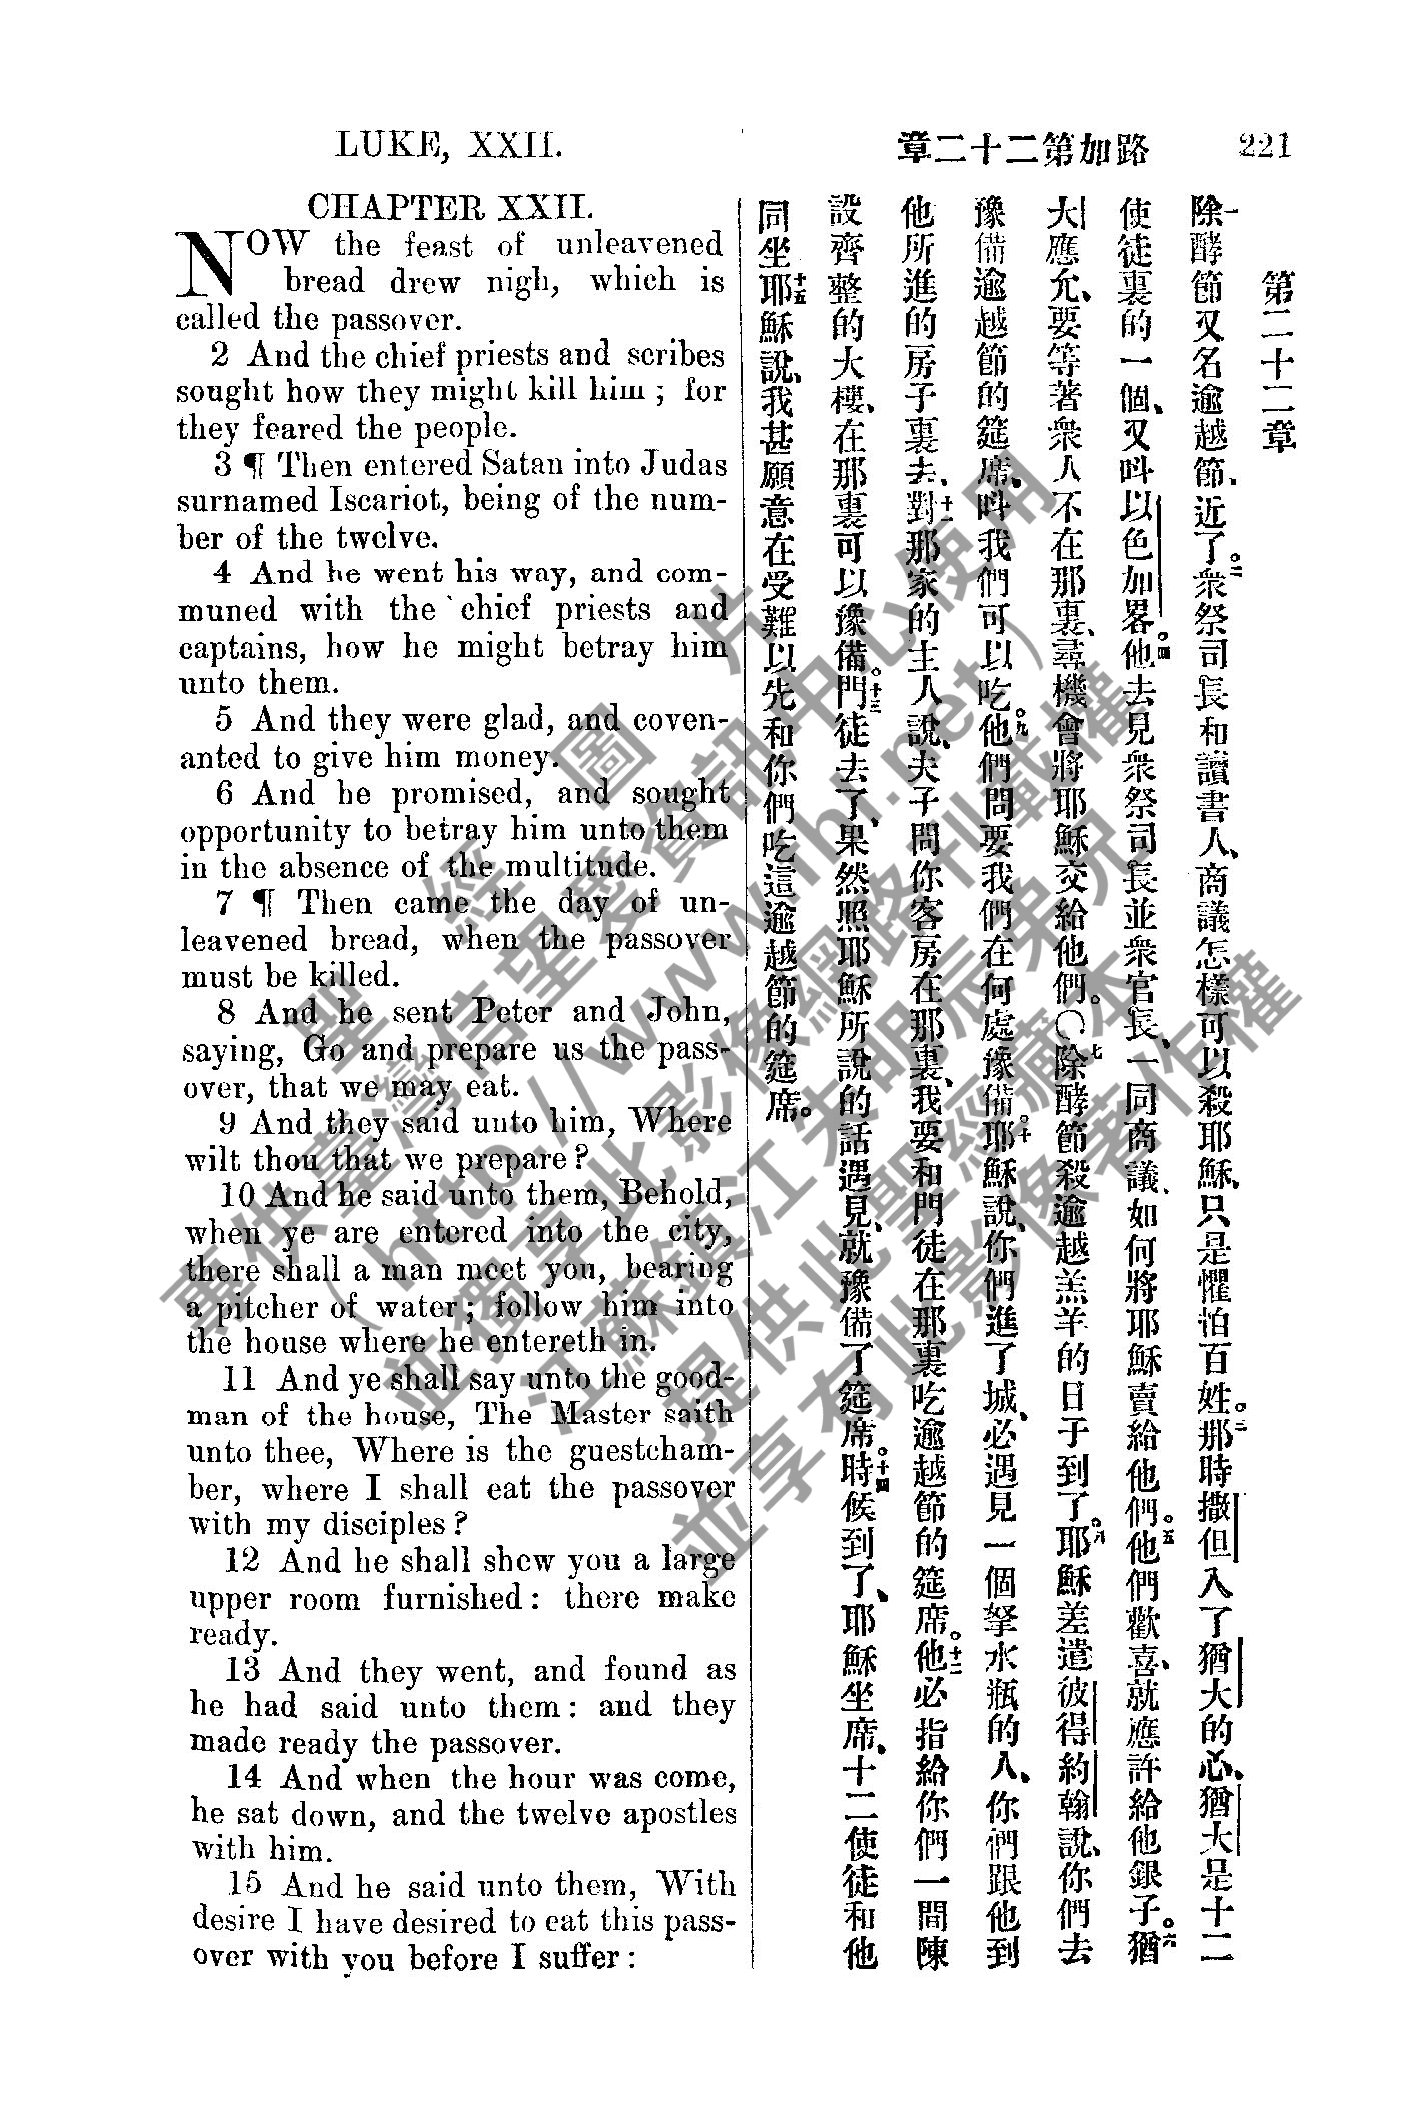 LUKE, XXII.
章二十二第加路
221
CHAPTER XXII.
NOW the feast of unleavened
bread drew nigh, which is
called the passover.
2 And the chief priests and scribes
sought how they might kill him ; for
they feared the people.
3 ¶ Then entered Satan into Judas
surnamed Iscariot, being of the num-
ber of the twelve.
4 And he went his way, and com-
muned with the chief priests and
captains, how he might betray him
unto them.
5 And they were glad, and coven-
anted to give him money.
6 And he promised, and sought
opportunity to betray him unto them
in the absence of the multitude.
7 ¶ Then came the day of un-
leavened bread, when the passover
must be killed.
8 And he sent Peter and John,
saying, Go and prepare us the pass-
over, that we may eat.
9 And they said unto him, Where
wilt thou that we prepare?
10 And he said unto them, Behold,
when ye are entered into the city,
there shall a man meet you, bearing
a pitcher of water; follow him into
the house where he entereth in.
11 And ye shall say unto the good-
man of the house, The Master saith
unto thee, Where is the guestcham-
ber, where I shall eat the passover
with my disciples?
12 And he shall shew you a large
upper room furnished: there make
ready.
13 And they went, and found as
he had said unto them: and they
made ready the passover.
14 And when the hour was come,
he sat down, and the twelve apostles
with him.
15 And he said unto them, With
desire I have desired to eat this pass-
over with you before I suffer:
第二十二章
一除酵節又名逾越節、近了。二衆祭司長和讀書人、商議怎樣可以殺耶穌、只是懼怕百姓。三那時撒但入了猶大的心、猶大是十二
使徒裏的一個、又呌以色加畧。四他去見衆祭司長並衆官長、一同商議、如何將耶穌賣給他們。五他們歡喜、就應許給他銀子。六猶
大應允、要等著衆人不在那裏、尋機會將耶穌交給他們。〇七除酵節殺逾越羔羊的日子到了。八耶穌差遣彼得約翰說、你們去
豫備逾越節的筵席、呌我們可以吃。九他們問要我們在何處豫備。十耶穌說、你們進了城、必遇見一個拏水瓶的人、你們跟他到
他所進的房子裏去、十一對那家的主人說、夫子問你客房在那裏、我要和門徒在那裏吃逾越節的筵席。十二他必指給你們一間陳
設齊整的大樓、在那裏可以豫備。十三門徒去了、果然照耶穌所說的話遇見、就豫備了筵席。十四時候到了、耶穌坐席、十二使徒和他
同坐、十五耶穌說、我甚願意在受難以先和你們吃這逾越節的筵席。
聖經圖片
專供臺灣信望愛資訊中心使用
（http://www.fhl.net）
並獨享此影像網路刊載權
江蘇鎮江朱明辰弟兄
提供此聖經藏本
並享有此影像著作權